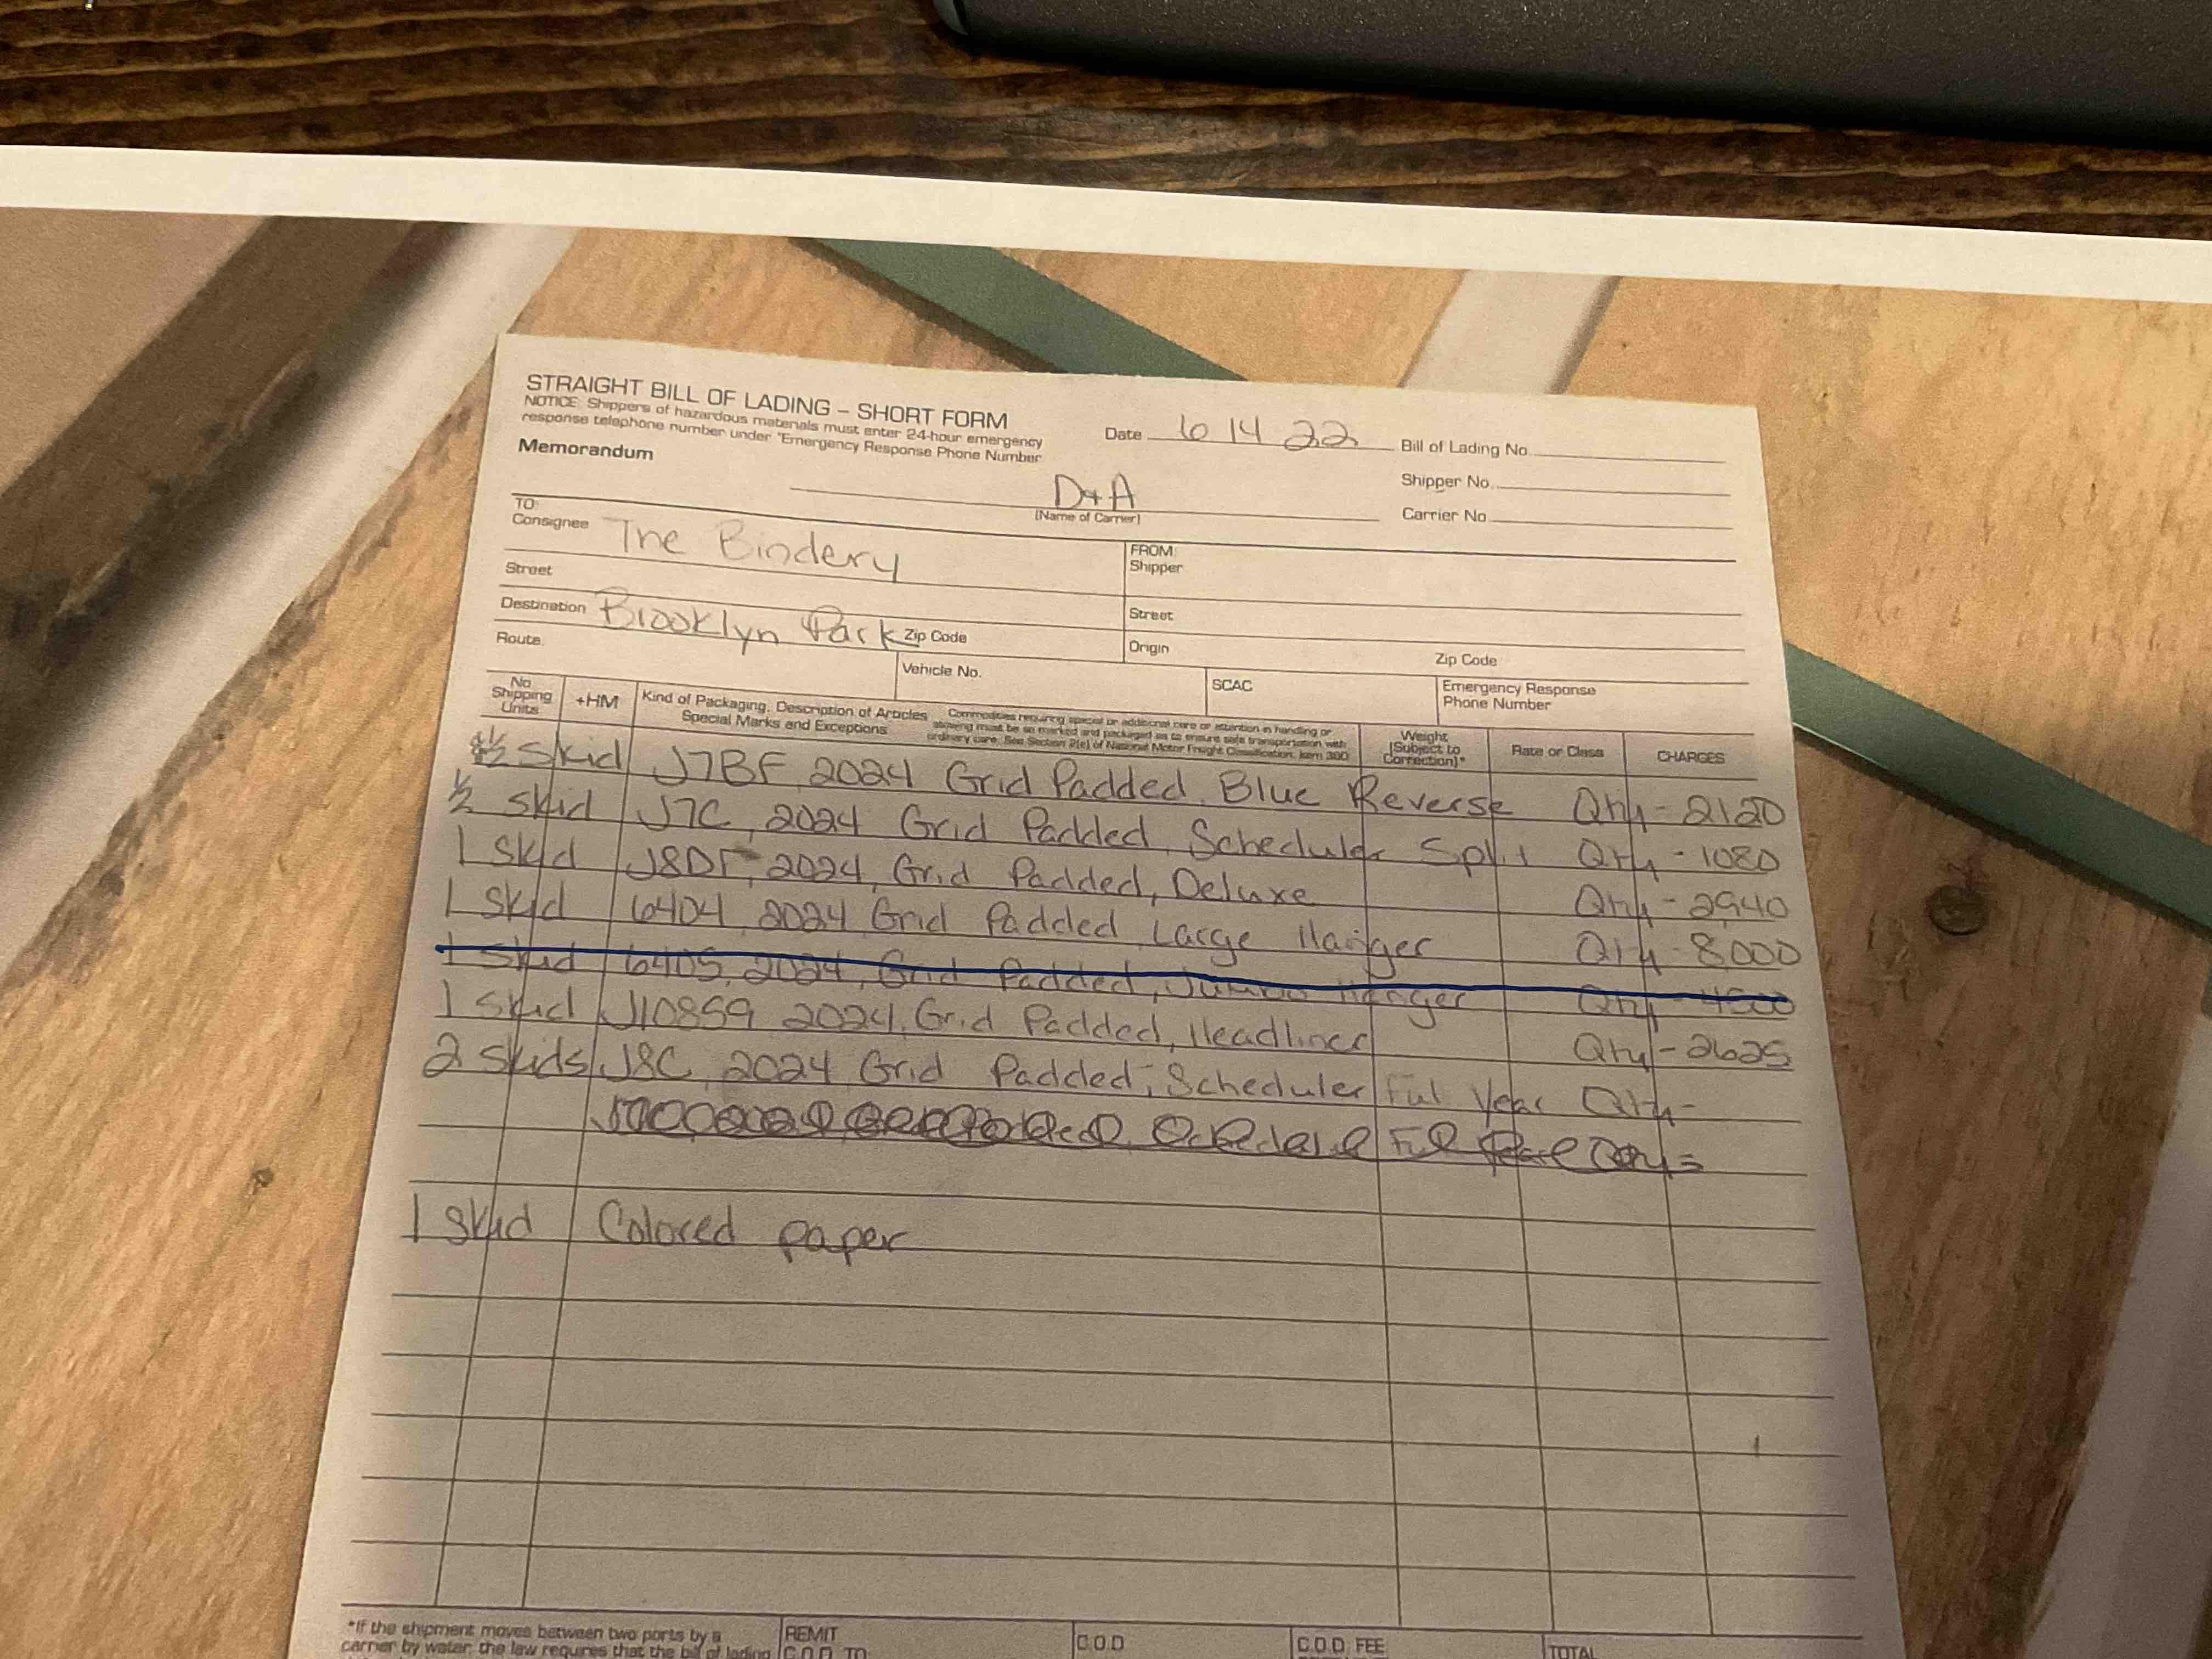 STRAIGHT BILL OF LADING – SHORT FORM
NOTICE: Shippers of hazardous materials must enter 24-hour emergency
response telephone number under "Emergency Response Phone Number
Memorandum
Date 6 14 22
Bill of Lading No.
Shipper No.
Carrier No.
D+A
(Name of Carrier)
TO:
Consignee The Bindery
FROM:
Shipper
Street
Street
Destination Brooklyn Park Zip Code
Origin
Zip Code
Route:
Vehicle No.
SCAC
Emergency Response
Phone Number
No.
Shipping
Units
+HM
Kind of Packaging, Description of Articles
Special Marks and Exceptions
Commodities requiring special or additional care or attention in handling or
stowing must be so marked and packaged as to ensure safe transportation with
ordinary care. See Section 2(e) of National Motor Freight Classification, Item 360
Weight
(Subject to
Correction)*
Rate or Class
CHARGES
1/2 Skid J7BF, 2024 Grid Padded, Blue Reverse Qty - 2120
1/2 Skid J7C, 2024 Grid Padded, Scheduler Split Qty - 1080
1 Skid J8DF, 2024, Grid Padded, Deluxe Qty - 2940
1 Skid 6404, 2024 Grid Padded Large Hanger Qty - 8000
1 Skid 6405, 2024, Grid Padded, Jumbo Hanger Qty - 4500
1 Skid J10859 2024, Grid Padded, Headliner Qty - 2625
2 Skids J8C, 2024 Grid Padded, Scheduler Full Year Qty -
1 Skid Colored paper
*If the shipment moves between two ports by a
carrier by water, the law requires that the bill of lading
REMIT
C.O.D. TO:
C.O.D
C.O.D. FEE
TOTAL